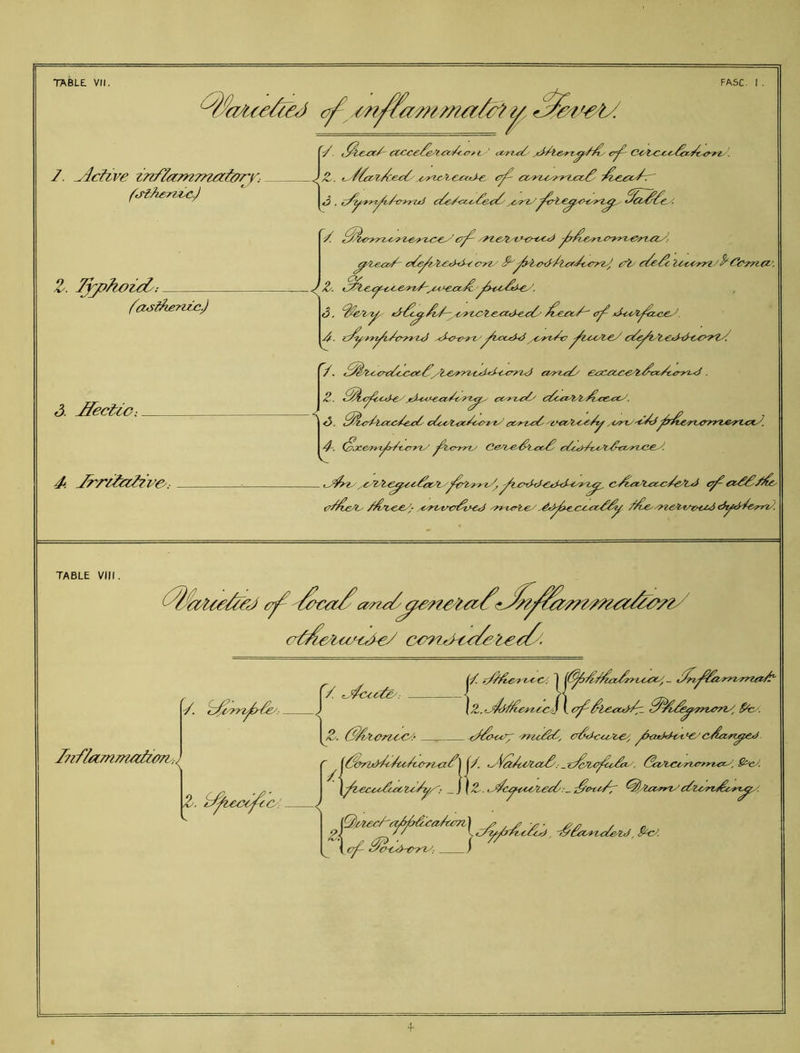 TABLE VII.
FASC. I.
Varieties of inflammatory Fever.
1. Active inflammatory.
(sthenic)
1. Great acceleration and strength of Circulation.
2. Marked increase of animal heat.
3. Symptoms detailed in foregoing Table.
2. Typhoid.
(asthenic)
1. Prominence of nervous phenomena,
great depression & prostration, or delirium & Coma.
2. Frequent, weak pulse.
3. Very slight increased heat of surface.
4. Symptoms soon pass into pure depression.
3. Hectic.
1. Periodical remissions and exacerbations.
2. Profuse sweating, and diarrhœa.
3. Protracted duration and variety in its phenomena.
4. Exemption from Cerebral disturbance.
4. Irritative.
An irregular form, possessing characters of all the
other three; involves more especially the nervous system.
TABLE VIII.
Varieties of local and general Inflammation
otherwise considered.
Inflammation,
1. Simple.
1. Acute.
1. Sthenic.
2. Asthenic
Ophthalmia, Inflammat
of breast, Phlegmon, &c.
2. Chronic.
Slow, mild, obscure, passive changes
2. Specific.
1. Constitutional
peculiarity.
1. Natural. Scrofula. Carcinoma, &c.
2. Acquired. Gout, Dram drinking.
2. Direct application
of Poison.
Syphilis, Glanders, &c.
4